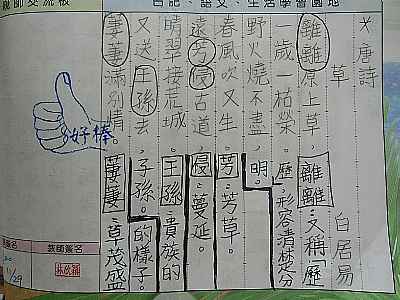 日記、語文、生活學習園地
親師交流板
唐詩
草 白居易
離離原上草，離離：又稱「歷
一歲一枯榮。歷，形容清楚分
野火燒不盡，明。
春風吹又生。芳：芳草。
遠芳侵古道，侵：蔓延。
晴翠接荒城。王孫：貴族的
又送王孫去，子孫。的樣子。
萋萋滿別情。萋萋：草茂盛
好棒
簽名
教師簽名
11/29